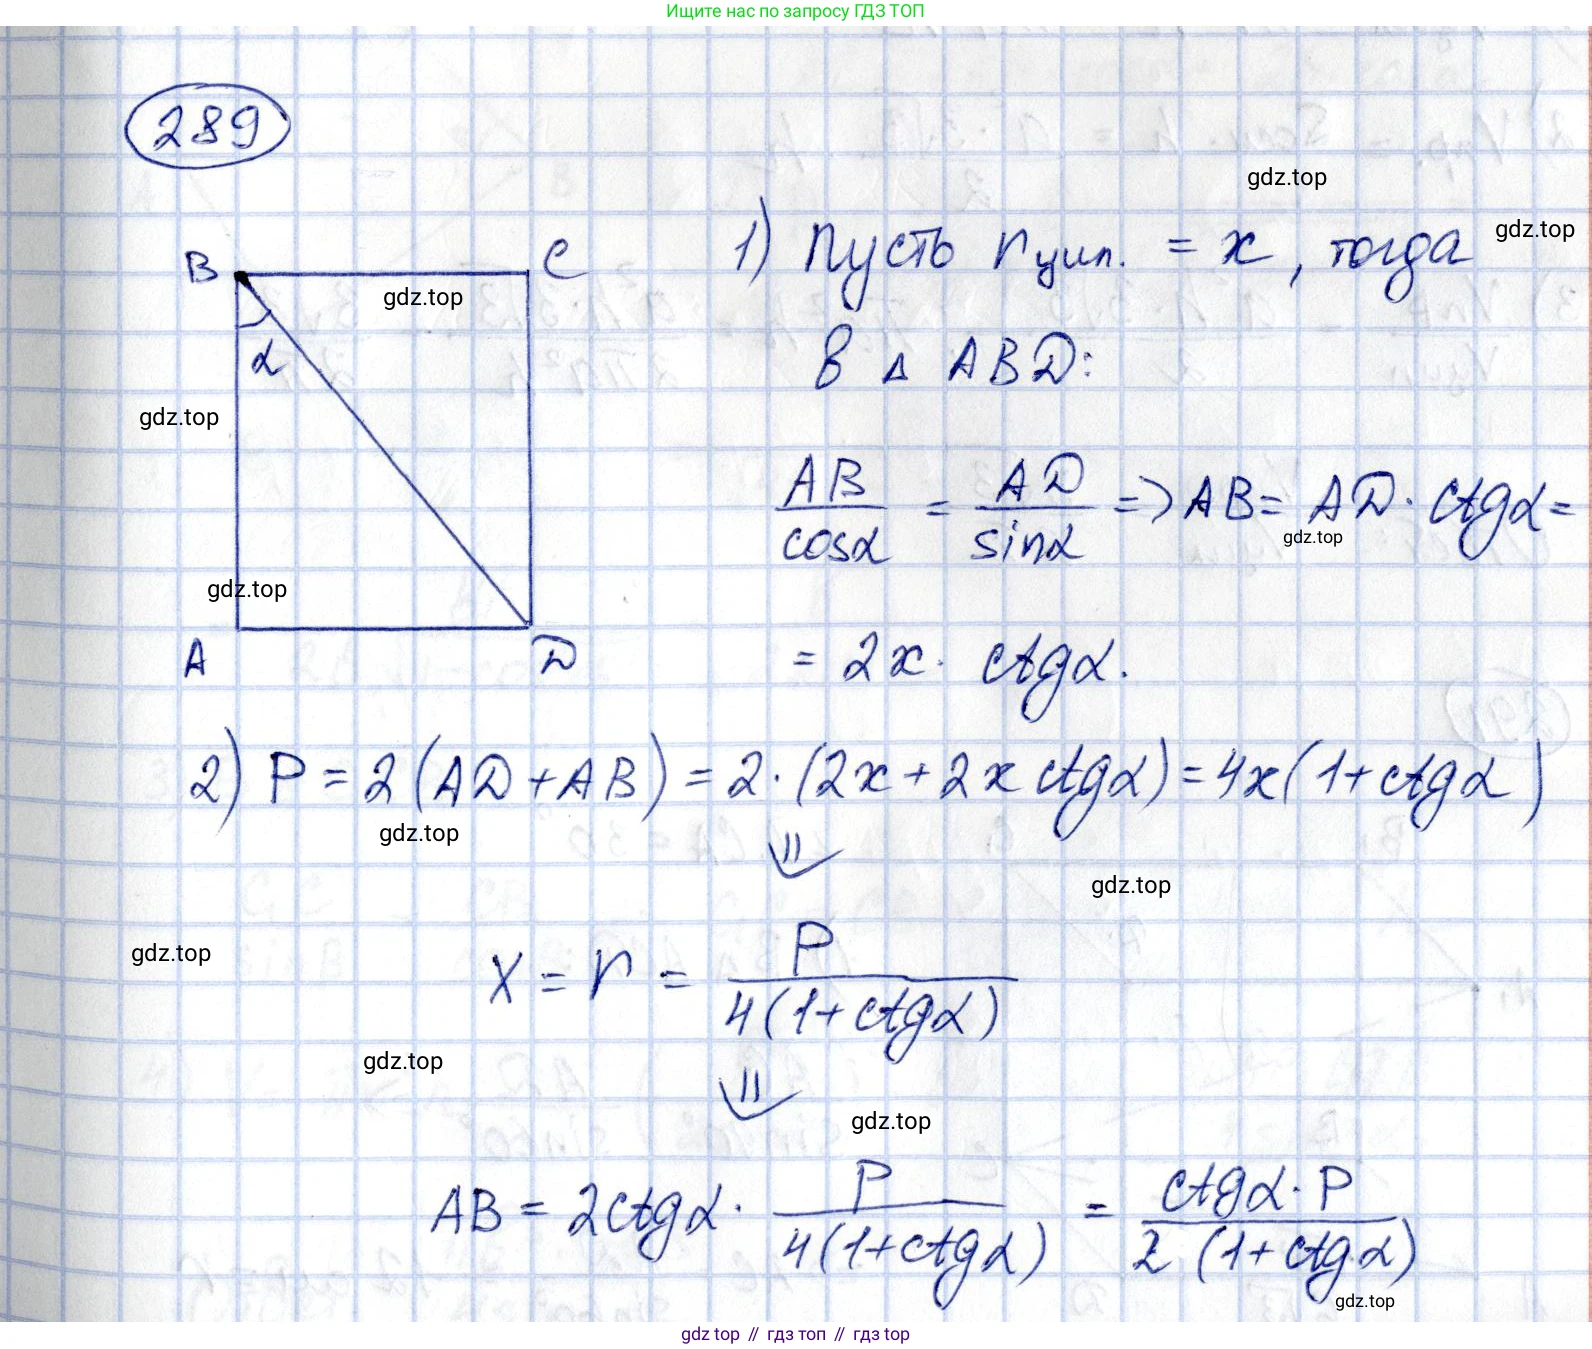 Ищите нас по запросу ГДЗ ТОП
289
gdz.top
gdz.top
B C
gdz.top
α
gdz.top
gdz.top
A D
1) Пусть r цил. = x, тогда
в Δ ABD:
AB/cosα = AD/sinα => AB = AD · ctgα =
gdz.top
= 2x · ctgα.
2) P = 2(AD + AB) = 2 · (2x + 2x ctgα) = 4x(1 + ctgα)
gdz.top
⇓
gdz.top
gdz.top
x = r = P/4(1 + ctgα)
gdz.top
⇓
gdz.top
AB = 2ctgα · P/4(1 + ctgα) = ctgα · P/2 (1 + ctgα)
gdz.top
gdz top // гдз топ // гдз top